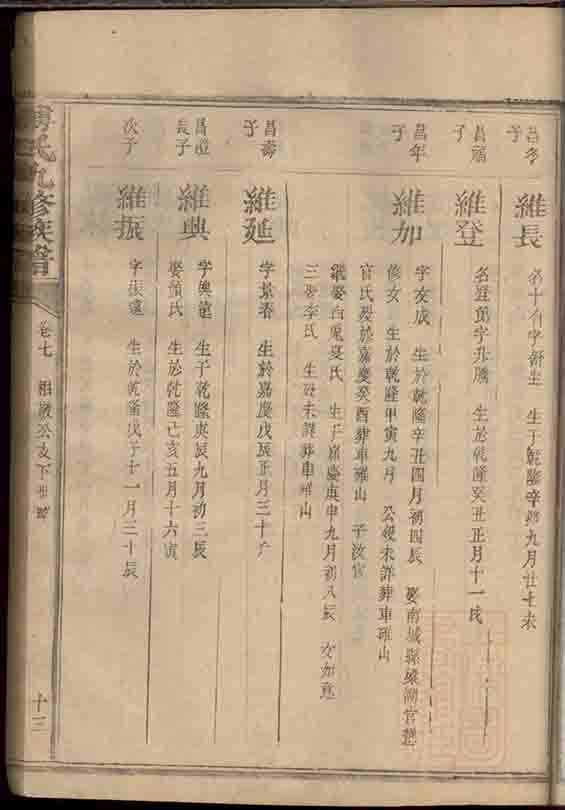 昌考子
維長
字舒生 生于乾隆辛卯九月廿七未
昌鴻子
維登
名登 字 生於乾隆癸丑正月十一辰
昌年子
維加
字友成 生於乾隆辛丑四月初四辰 娶南城縣 湖官
修女 生於乾隆甲寅九月 公歿未詳葬車確山
官氏歿於嘉慶癸酉葬車確山 子汝官
繼娶 氏 生于嘉慶庚申九月初八辰 次如意
三娶李氏 生歿未詳葬車確山
昌壽子
維延
字景春 生於嘉慶戊辰正月三十
昌 長子
維興
字興龍 生于乾隆庚辰九月初三辰
娶 氏 生於乾隆己亥五月十六寅
次子
維振
字振遠 生於乾隆戊子十一月三十辰
氏九修族譜
卷七
公支下世
十三